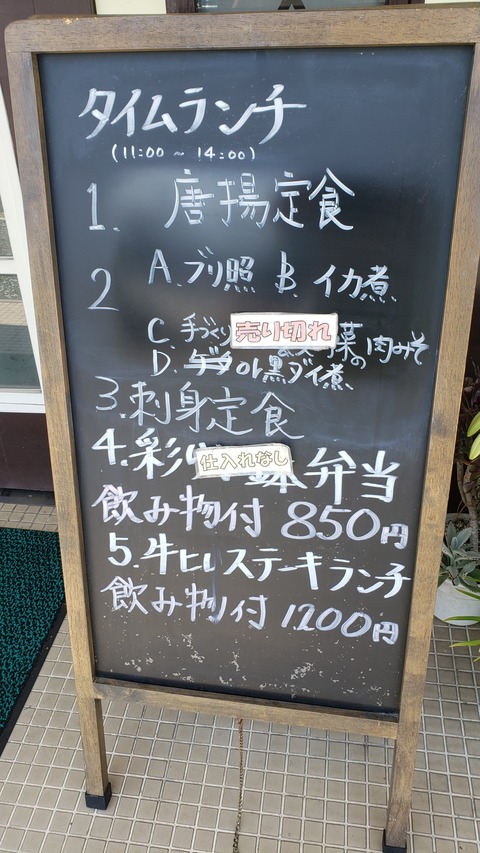 タイムランチ
(11:00 ~ 14:00)
1. 唐揚定食
2 A. ブリ照 B. イカ煮
C. 手づくり 売り切れ 菜の肉みそ
D. or 黒ダイ煮
3. 刺身定食
4. 彩り 仕入れなし 鉢弁当
飲み物付 850円
5. 牛ヒレステーキランチ
飲み物付 1200円